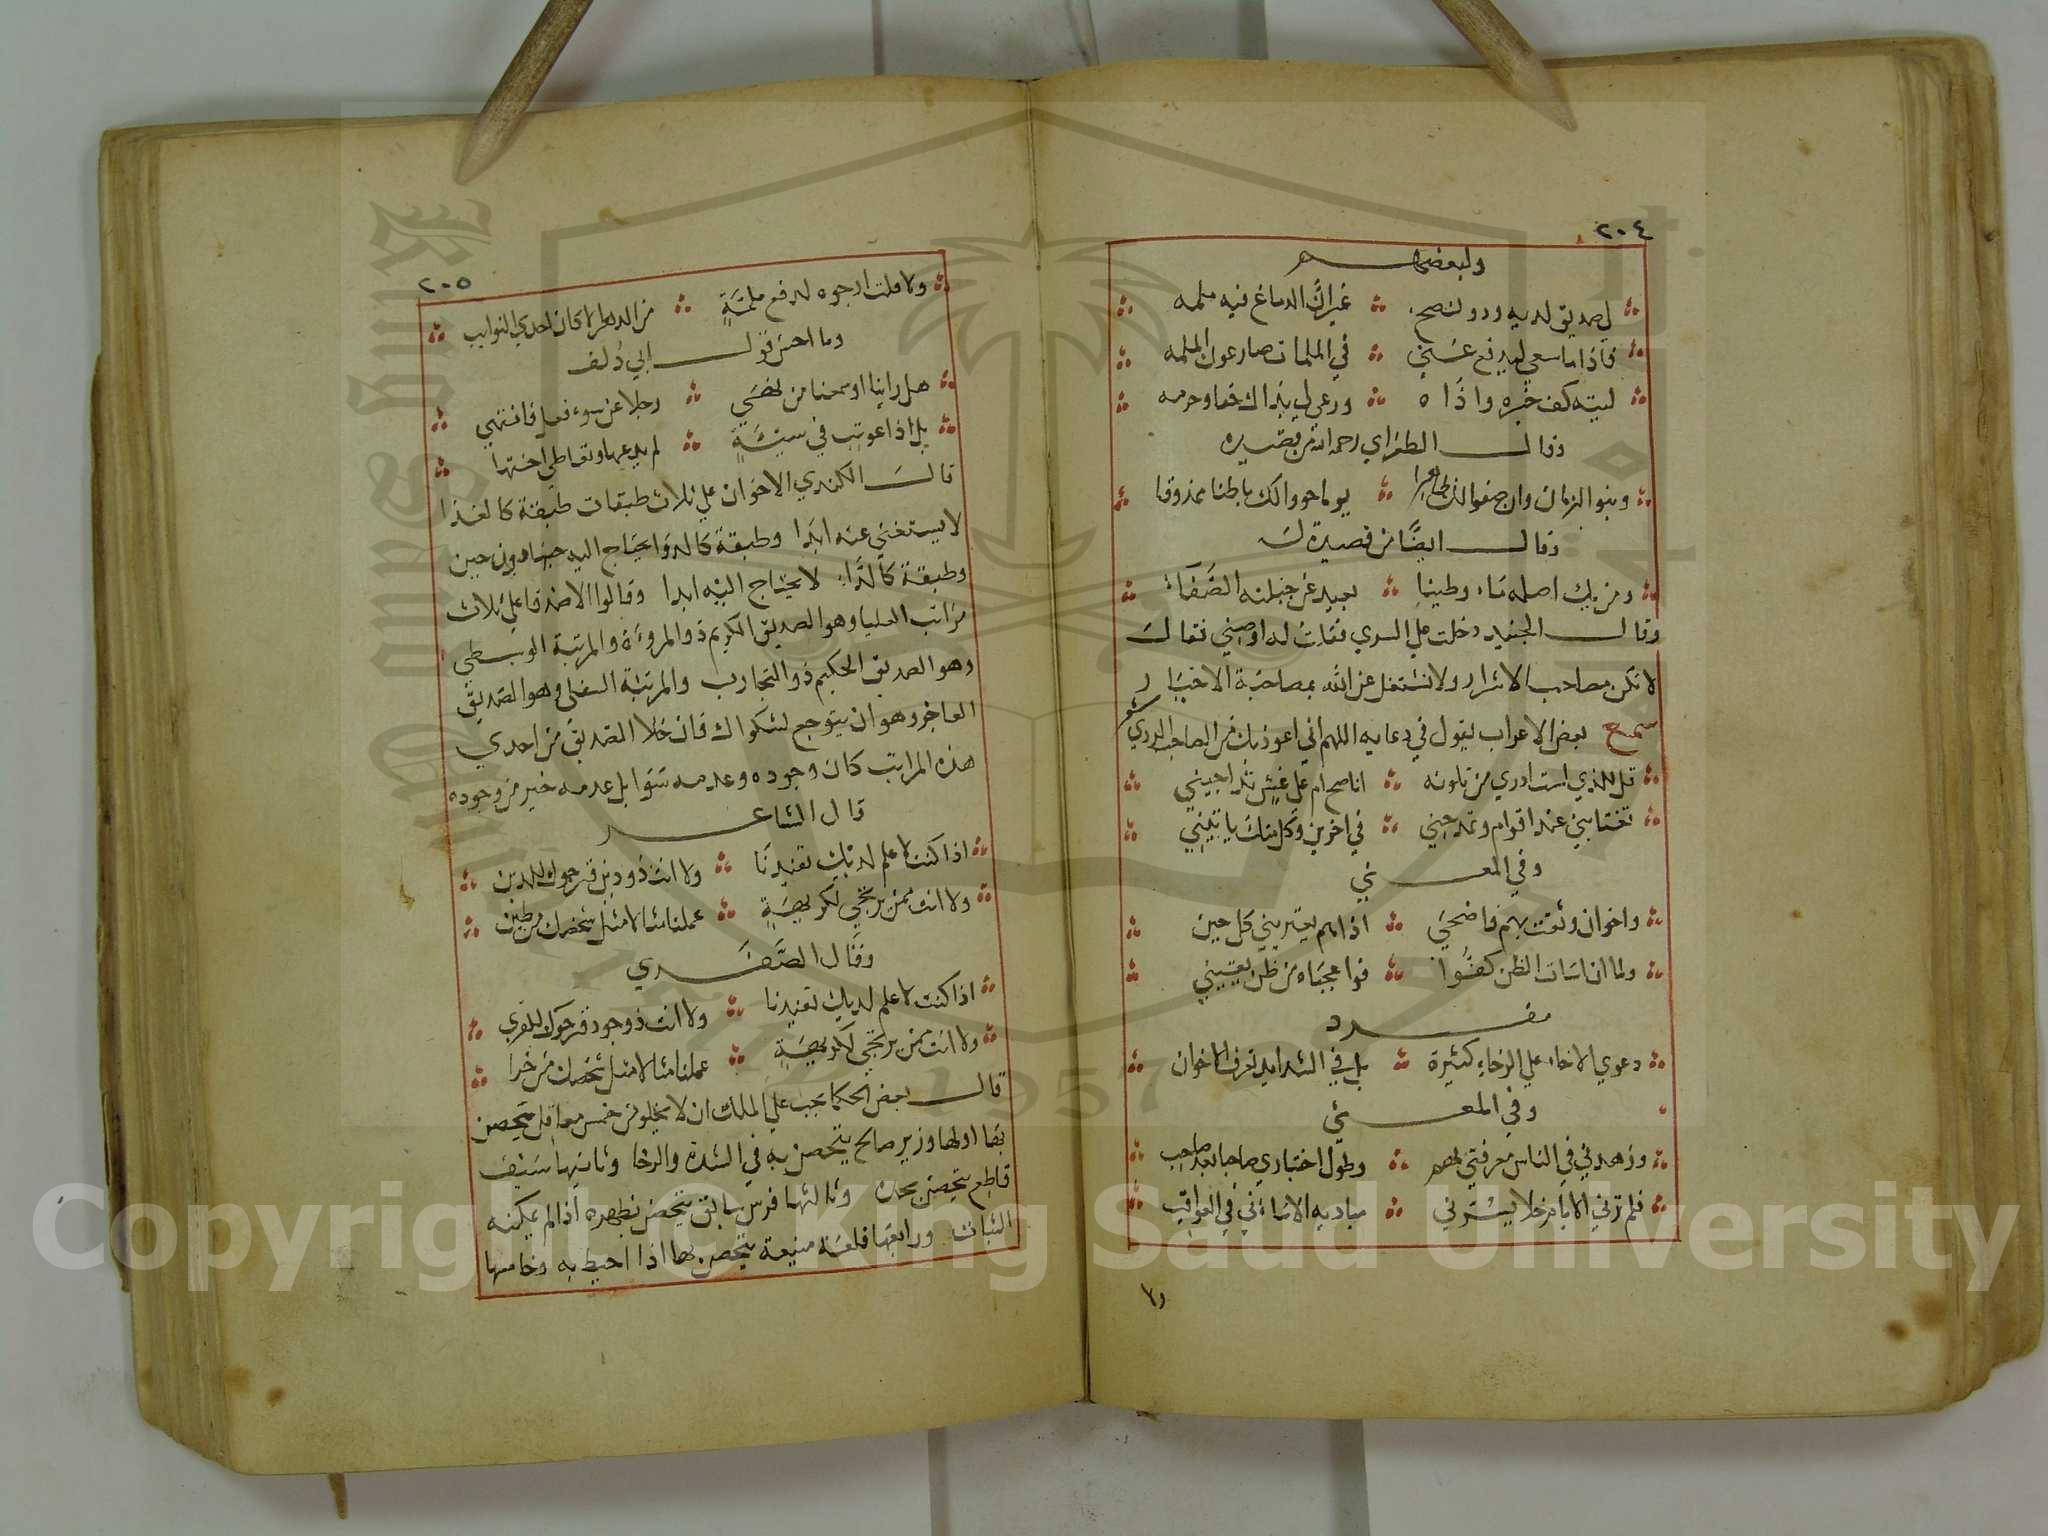 ٢٠٤
ولبعضهم
لي صديق لديه ود ونصح غير ان الدماغ فيه ملمه
فاذا ما سعي ليدفع عني في الملمات صار عون الملمه
ليته كف خيره واذاه ورعي لي بذاك حقا وحرمه
وقال الطغراي رحمه الله من قصيده
وقال ايضا من قصيدة له
ومن يك اصله ماء وطينا بعيد عن جبلته الصفاء
وقال الجنيد دخلت علي السري فقلت له اوصني فقال
لا تكن مصاحب الاشرار ولا تشتغل عن الله بمصاحبة الاخيار
سمع بعض الاعراب يقول في دعايه اللهم اني اعوذ بك من الصاحب الردي شعر
قل للذي لست ادري من تلونه اناصح ام علي غش يداجيني
تغتابني عند اقوام وتمدحني في اخرين وكل منك ياتيني
وفي المعني
واخوان وثقت بهم فاضحي اذاهم يعتريني كل حين
ولما ان اسات الظن كفوا فوا عجباه من ظن يقيني
مفرد
دعوي الاخاء علي الرخاء كثيرة بل في الشدايد تعرف الاخوان
وفي المعني
وزهدني في الناس معرفتي بهم وطول اختباري صاحبا بعد صاحب
فلم ترني الايام خلا يسرني مباديه الا ساءني في العواقب
ولا
٢٠٥
ولا قلت ارجوه لدفع ملمة من الدهر الا كان احدي النوايب
وما احسن قول ابي دلف
هل راينا او سمعنا من نهي رجلا عن سوء فعل فانتهي
بل اذا عوتب في سيئة لم يدعها وتعاطي اختها
قال الكندي الاخوان علي ثلاث طبقات طبقة كالغذا
لا يستغني عنه ابدا وطبقة كالدوا يحتاج اليه حينا دون حين
وطبقة كالداء لا يحتاج اليه ابدا وقالوا الاصدقا علي ثلاث
مراتب العليا وهو الصديق الكريم ذو المروءة والمرتبة الوسطي
وهو الصديق الحكيم ذو التجارب والمرتبة السفلي وهو الصديق
العاجز وهو ان يتوجع لشكواك فان خلا الصديق من احدي
هذه المراتب كان وجوده وعدمه سوا بل عدمه خير من وجوده
قال الشاعر
اذا كنت لا علم لديك تفيدنا ولا انت ذو دين فنرجوك للدين
ولا انت ممن يرتجي لكريهة عملنا مثالا مثل شخصك من طين
وقال الصفدي
اذا كنت لا علم لديك تفيدنا ولا انت ذو جود فنرجوك للقري
ولا انت ممن يرتجي لكريهة عملنا مثالا مثل شخصك من خرا
قال بعض الحكما يجب علي الملك ان لا يخلو من خمس معاقل يتحصن
بها اولها وزير صالح يتحصن به في الشدة والرخا وثانيها سيف
قاطع يتحصن بحده وثالثها فرس سابق يتحصن بظهره اذا لم يمكنه
الثبات ورابعها قلعة منيعة يتحصن بها اذا احيط به وخامسها
Copyright © King Saud University
1957